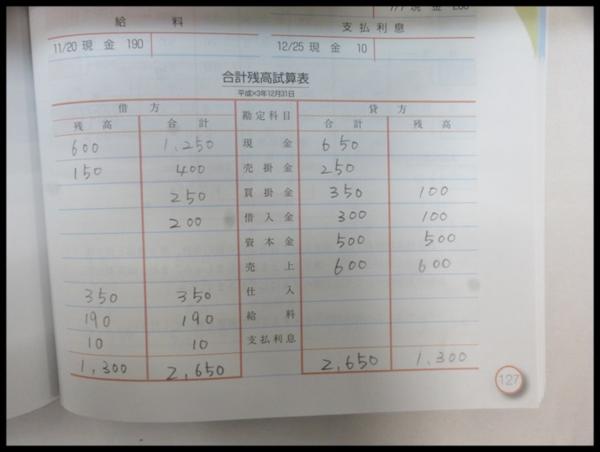 7/7 現 金 200
給 料
支 払 利 息
11/20 現 金 190
12/25 現 金 10
合計残高試算表
平成×3年12月31日
借 方 勘定科目 貸 方
残 高 合 計 合 計 残 高
600 1,250 現 金 650
150 400 売 掛 金 250
250 買 掛 金 350 100
200 借 入 金 300 100
資 本 金 500 500
売 上 600 600
350 350 仕 入
190 190 給 料
10 10 支払利息
1,300 2,650 2,650 1,300
127